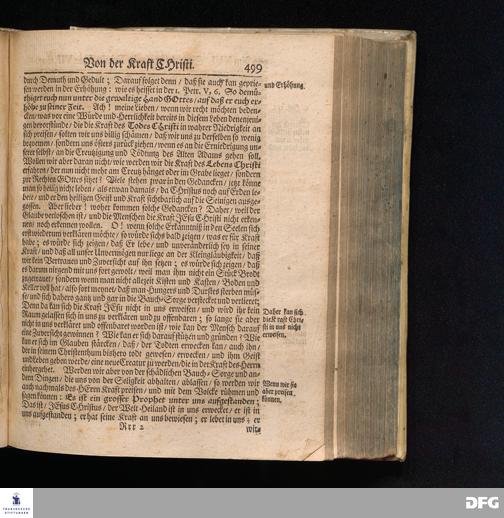 Von der Kraft CHristi. 499
durch Demuth und Gedult; Darauf folget denn / daß sie auch kan geprie-
sen werden in der Erhöhung: wie es heisset in der 1. Petr. V, 6. So demü-
thiget euch nun unter die gewaltige Hand GOttes / auf daß er euch er-
höhe zu seiner Zeit. Ach! meine Lieben / wenn wir recht möchten beden-
cken / was vor eine Würde und Herrlichkeit bereits in diesem Leben denenjeni-
gen bevorstünde / die die Kraft des Todes CHristi in wahrer Niedrigkeit an
sich preisen / solten wir uns billig schämen / daß wir uns zu derselben so wenig
beqvemen / sondern uns öfters zurück ziehen / wenn es an die Erniedrigung un-
serer selbst / an die Creutzigung und Tödtung des Alten Adams gehen soll.
Wollen wir aber daran nicht / wie werden wir die Kraft des Lebens Christi
erfahren / der nun nicht mehr am Creutz hänget oder im Grabe lieget / sondern
zur Rechten GOttes sitzet? Viele stehen zwar in den Gedancken / jetzt könne
man so heilig nicht leben / als etwan damals / da CHristus noch auf Erden le-
bete / und er den heiligen Geist und Kraft sichtbarlich auf die Seinigen ausge-
gossen. Aber lieber! woher kommen solche Gedancken? Daher / weil der
Glaube verloschen ist / und die Menschen die Kraft JEsu CHristi nicht erken-
nen / noch erkennen wollen. O! wenn solche Erkänntniß in den Seelen sich
erst wiederum verklären möchte / so würde sichs bald zeigen / was er für Kraft
habe; es würde sich zeigen / daß Er lebe / und unveränderlich sey in seiner
Kraft / und daß all unser Unvermögen nur liege an der Kleingläubigkeit / daß
wir kein Vertrauen und Zuversicht auf ihn setzen; es würde sich zeigen / daß
es darum nirgend mit uns fort gewolt / weil man ihm nicht ein Stück Brodt
zugetrauet / sondern wenn man nicht allezeit Kisten und Kasten / Boden und
Keller voll hat / also fort meynet / daß man Hungers und Durstes sterben müs-
se / und sich dahero gantz und gar in die Bauch-Sorge verstecket und verlieret;
Denn da kan sich die Kraft JEsu nicht in uns erweisen / und wird ihr kein
Raum gelassen sich in uns zu verklären und zu offenbaren; so lange sie aber
nicht in uns verkläret und offenbaret worden ist / wie kan der Mensch darauf
eine Zuversicht gewinnen? Wie kan er sich darauf stützen und gründen? Wie
kan er sich im Glauben stärcken / daß / der Todten erwecken kan / auch ihn /
der in seinem Christenthum bishero todt gewesen / erwecken / und ihm Geist
und Leben geben werde / eine neue Creatur zu werden / die in der Kraft des Herrn
einhergehet. Werden wir aber von der schädlichen Bauch-Sorge und an-
dern Dingen / die uns von der Seligkeit abhalten / ablassen / so werden wir
auch nachmals des HErrn Kraft preisen / und mit dem Volcke rühmen und
sagen können: Es ist ein grosser Prophet unter uns aufgestanden;
Das ist / JEsus CHristus / der Welt-Heiland ist in uns erwecket / er ist in
uns aufgestanden; er hat seine Kraft an uns bewiesen; er lebet in uns; er
Rrr 2 wir-
und Erhöhung.
Daher kan sich
die Kraft Chri-
sti in uns nicht
erweisen.
Wenn wir sie
aber preisen
können.
FRANCKESCHE
STIFTUNGEN
DFG